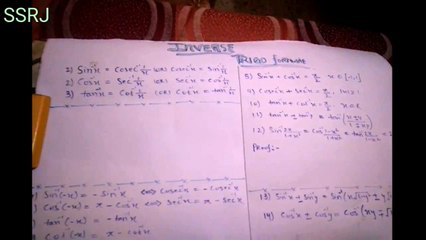 SSRJ
DIVERSE
TRIGO FORMULAE
1) Sin⁻¹x = Cosec⁻¹ 1/x (or) Cosec⁻¹x = Sin⁻¹ 1/x
2) Cos⁻¹x = Sec⁻¹ 1/x (or) Sec⁻¹x = Cos⁻¹ 1/x
3) tan⁻¹x = Cot⁻¹ 1/x (or) Cot⁻¹x = tan⁻¹ 1/x
Sin⁻¹(-x) = - Sin⁻¹x ⇔ Cosec⁻¹x = - Cosec⁻¹x
) Cos⁻¹(-x) = π - Cos⁻¹x ⇔ Sec⁻¹x = π - Sec⁻¹x
) tan⁻¹(-x) = - tan⁻¹x
Cot⁻¹(-x) = π - Cot⁻¹x
8) Sin⁻¹x + Cos⁻¹x = π/2 x ∈ [-1,1]
9) Cosec⁻¹x + Sec⁻¹x = π/2
10) tan⁻¹x + Cot⁻¹x = π/2 x ∈ R
11)
12) Sin⁻¹ 2x/1+x² = Cos⁻¹ 1-x²/1+x² = tan⁻¹ 2x/1-x²
Proof:-
13) Sin⁻¹x + Sin⁻¹y = Sin⁻¹(x√1-y² +
14) Cos⁻¹x + Cos⁻¹y = Cos⁻¹(xy